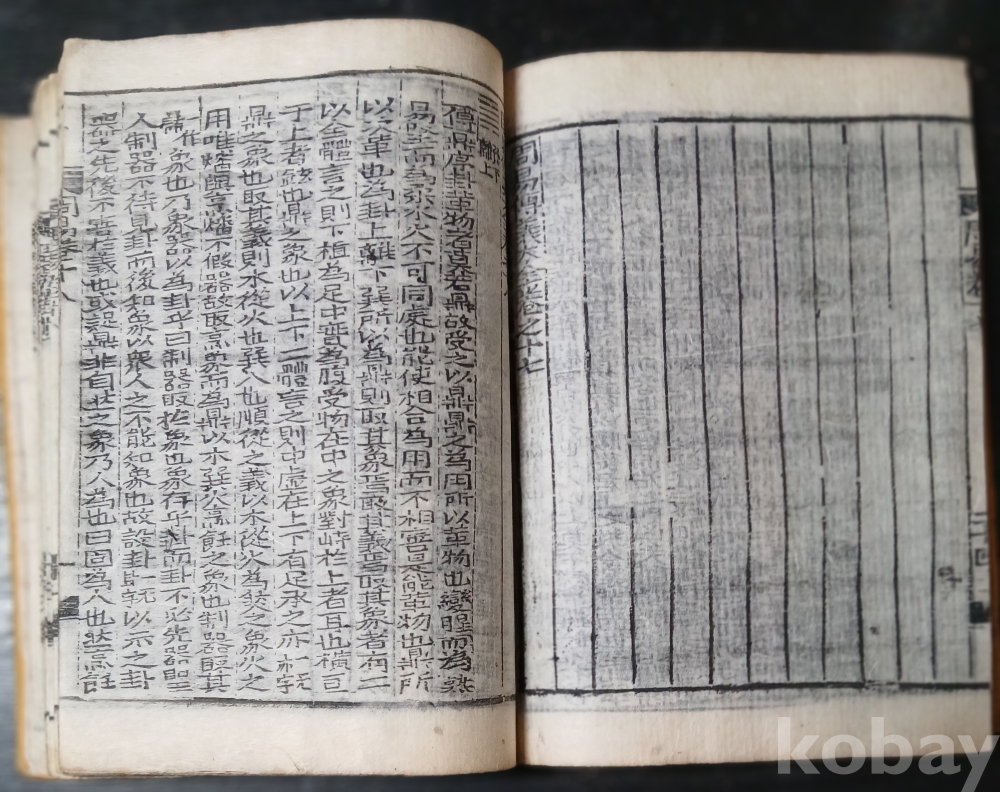 周易傳義大全卷之十七
二十四
巽下
離上
傳鼎序卦革物者莫若鼎故受之以鼎鼎之為用所以革物也變腥而為熟
易堅而為柔水火不可同處也能使相合為用而不相害是能革物也鼎所
以次革也為卦上離下巽所以為鼎則取其象焉取其義焉取其象者有二
以全體言之則下植為足中實為腹受物在中之象對峙於上者耳也橫亘
于上者鉉也鼎之象也以上下二體言之則中虛在上下有足承之亦一无亦字
鼎之象也取其義則木從火也巽入也順從之義以木從火為然之象火之
用唯燔與烹燔不假器故取烹象而為鼎以木巽火烹飪之象也制器取其
一作鼎象也乃象器以為卦乎曰制器取於象也象存乎卦而卦不必先器聖
人制器不待見卦而後知象以衆人之不能知象也故設卦一无卦字以示之卦
器之先後不害於義也或疑鼎非自然之象乃人為也曰固為人也然烹飪
周易卷十八
kobay